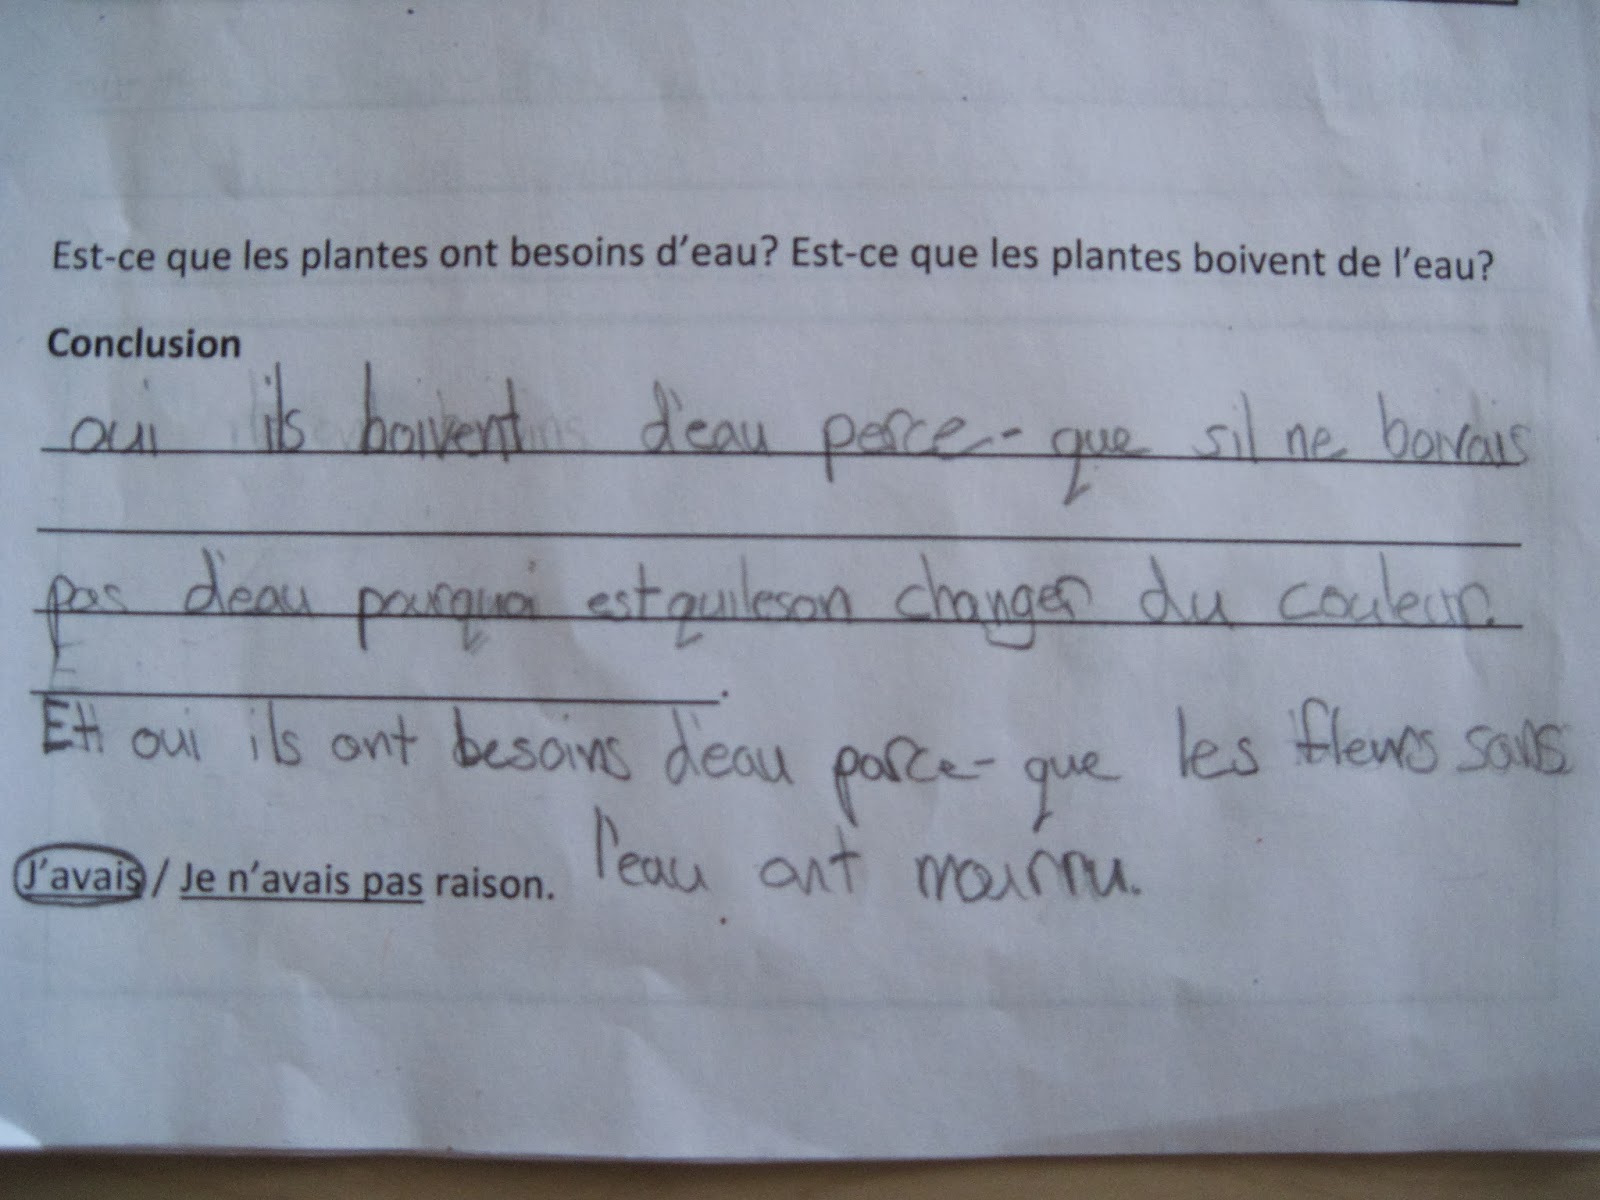 Est-ce que les plantes ont besoins d'eau? Est-ce que les plantes boivent de l'eau?
Conclusion
oui ils boivent d'eau perce-que sil ne boivais
pas d'eau pourquoi est quileson changer du couleur.
Et oui ils ont besoins d'eau parce-que les fleurs sans
l'eau ont mourru.
J'avais / Je n'avais pas raison.